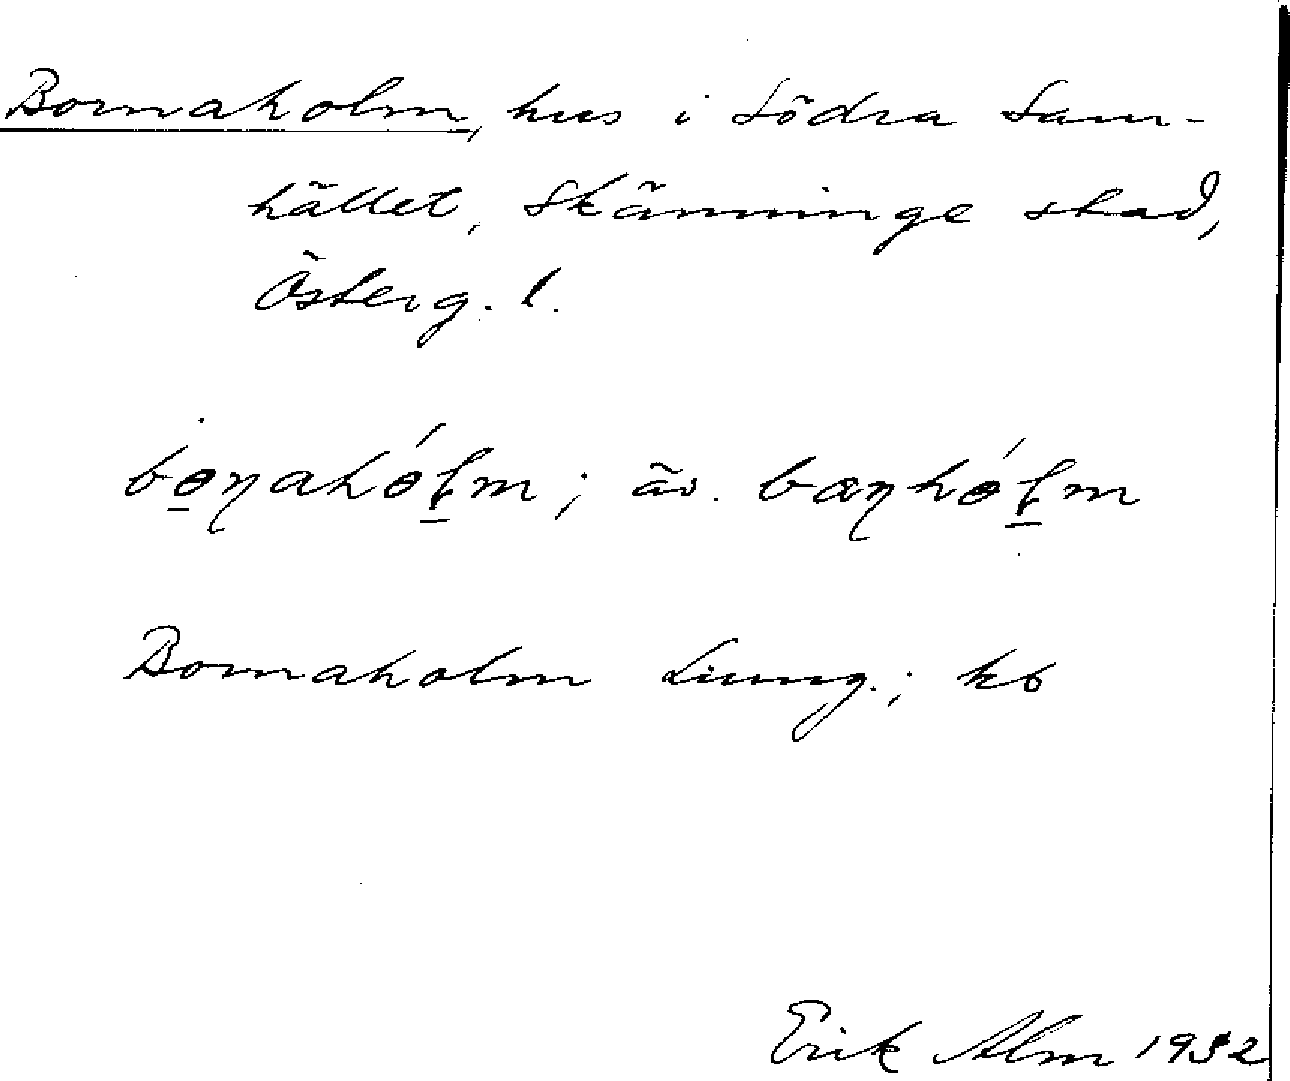 Bornaholm, hus i Södra Sam-
hället, Skänninge stad,
Österg. l.
bo̲ɳahóɭ̲m; äv. bɑɳhóɭ̲m
Bornaholm Ljung.; kb
Erik Alm 1932